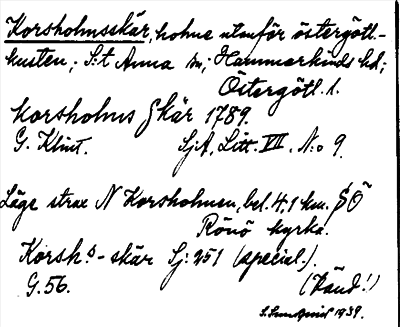 Korsholmsskär, holme utanför östergötl.-
kusten; S:t Anna sn; Hammarkinds hd;
Östergötl. l.
Korsholms Skär 1789.
G. Klint. SjA, Litt. VII, N:o 9.
Läge strax N Korsholmen, bel. 4,1 km. SÖ
Rönö kyrka.
Korsh.s-skär Sj: 251 (special.).
G. 56. (Länd!)
1939.